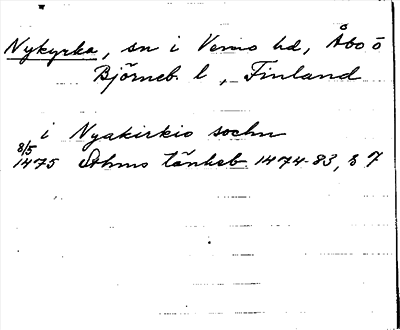 Nykyrka, sn i Vemo hd, Åbo o
Björneb l, Finland
i Nyakirkio sochn
8/5
1475 Sthms tänkeb 1474-83, s 7